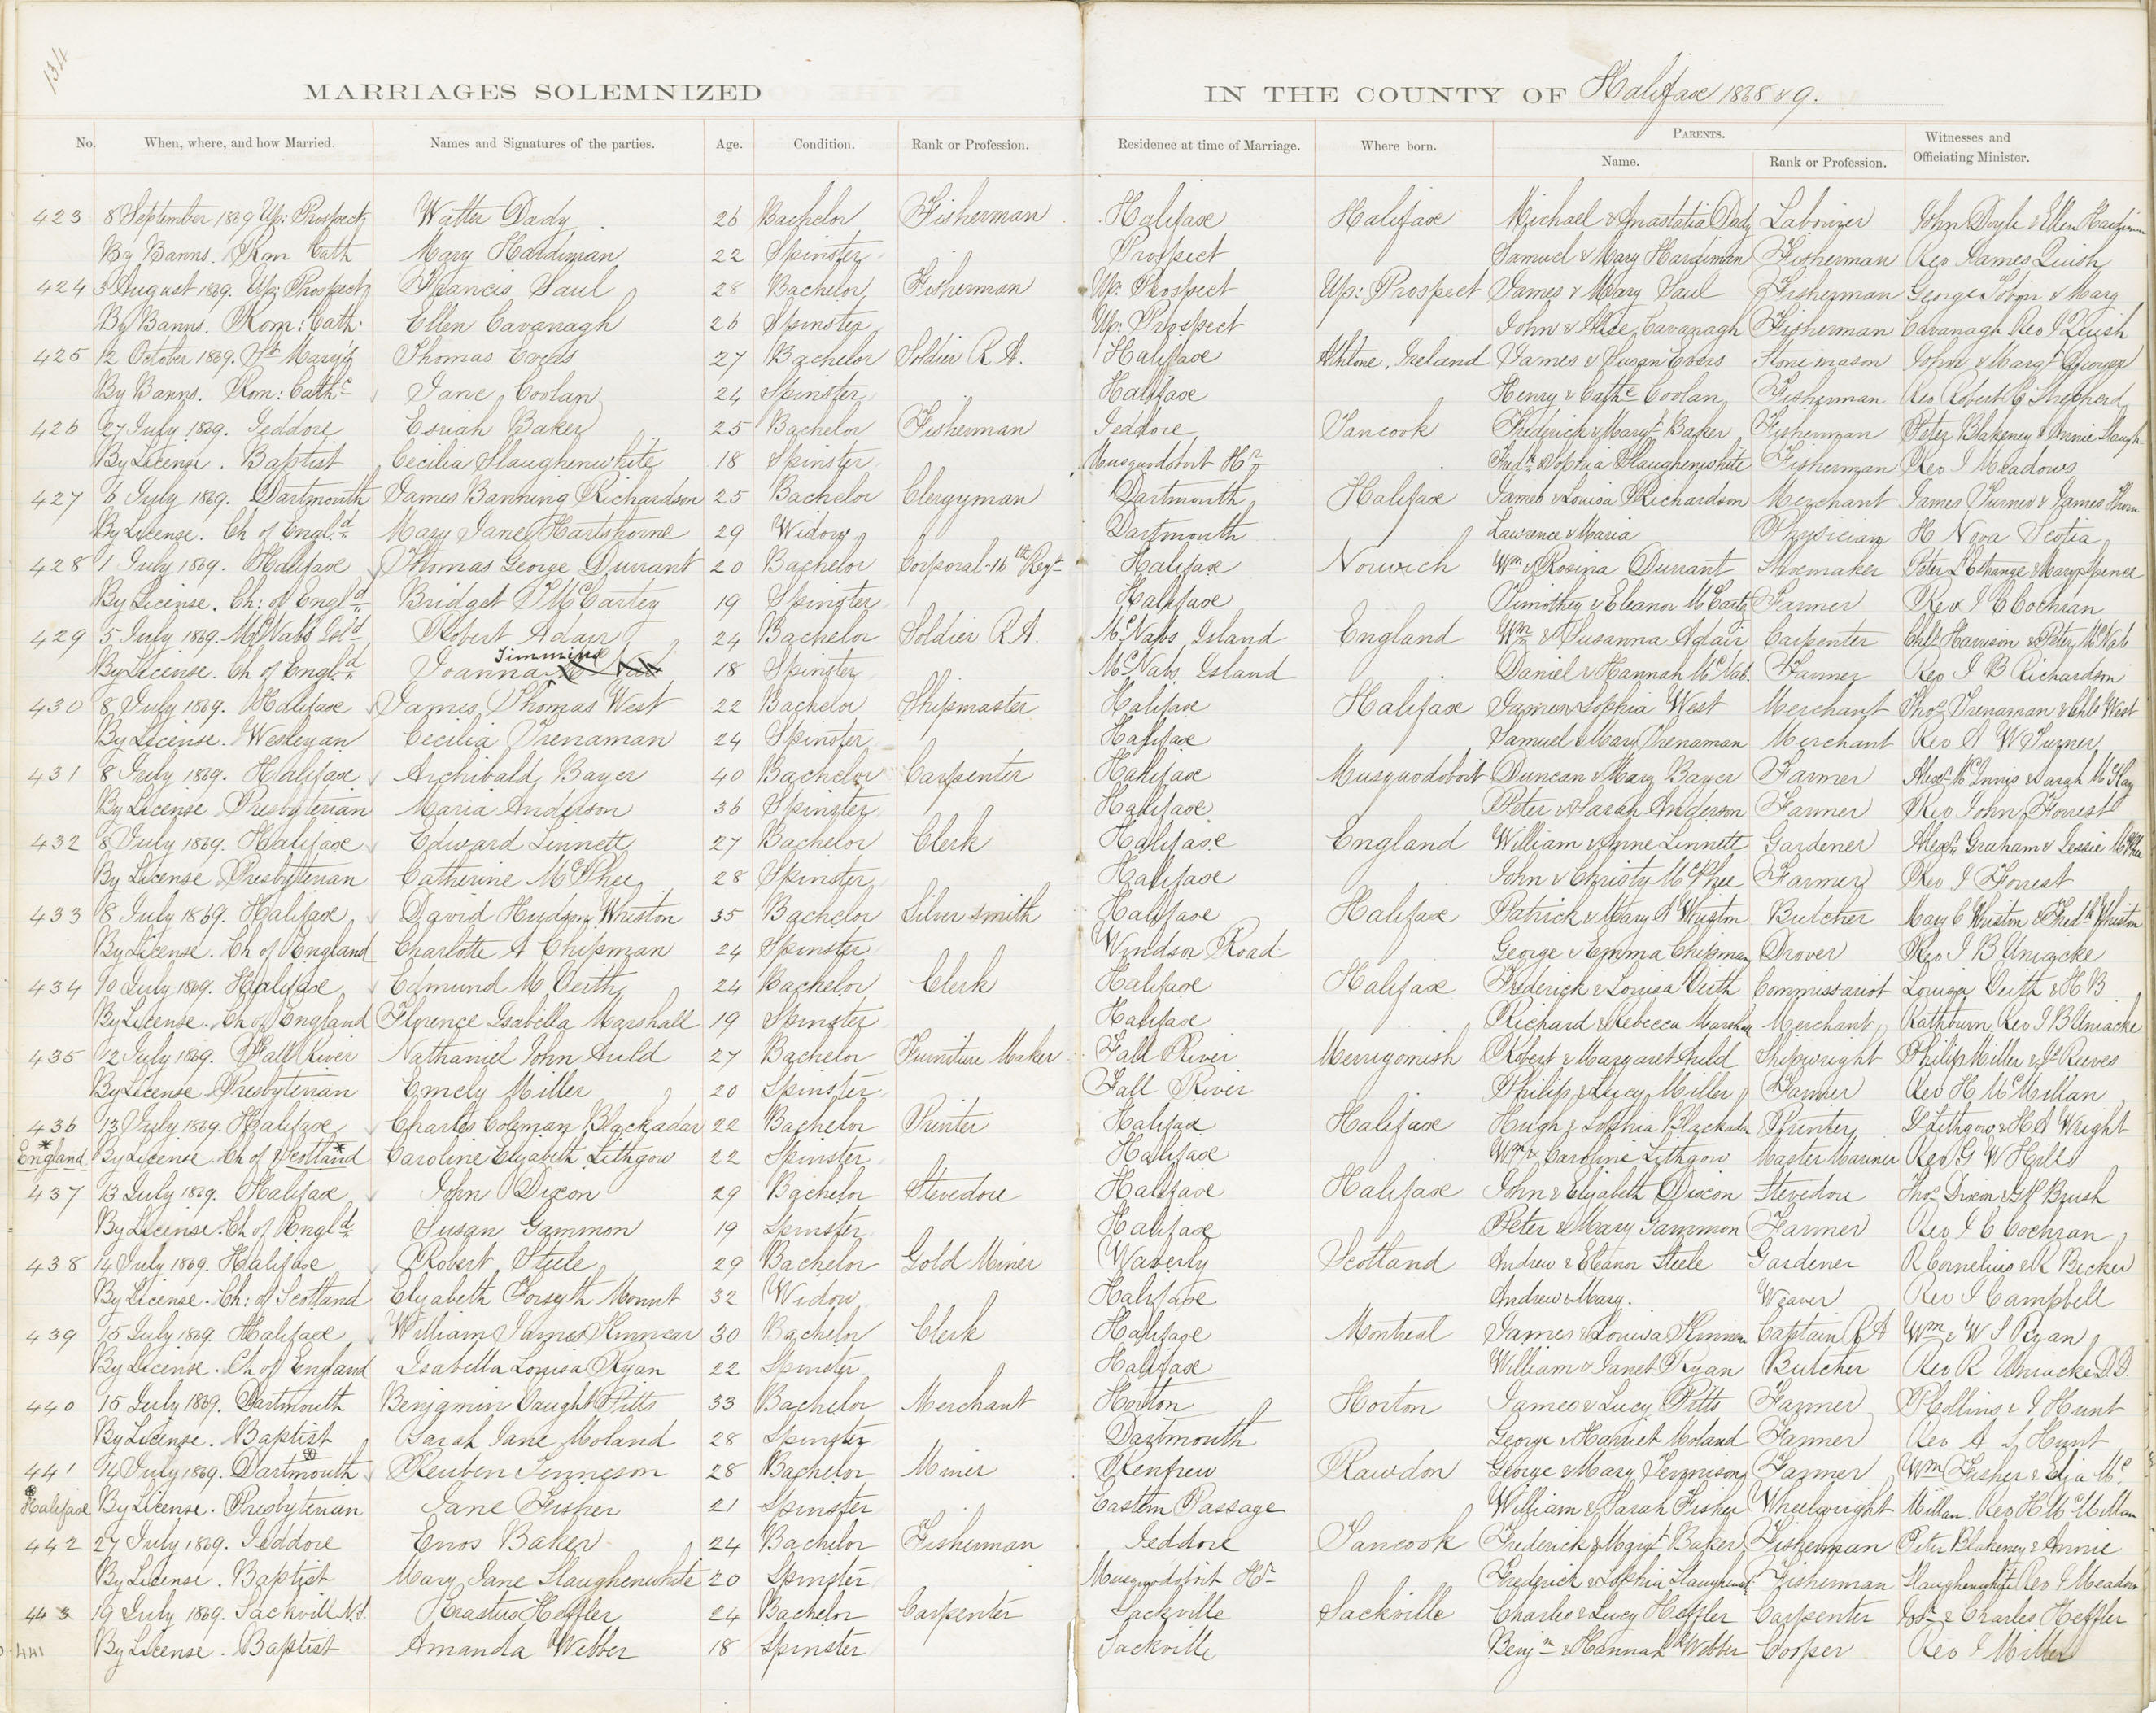 134
MARRIAGES SOLEMNIZED IN THE COUNTY OF Halifax 1868 & 9.
No. When, where, and how Married. Names and Signatures of the parties. Age. Condition. Rank or Profession. Residence at time of Marriage. Where born. PARENTS. Name. Rank or Profession. Witnesses and Officiating Minister.
423 8 September 1869 Up: Prospect Walter Dady 26 Bachelor Fisherman Halifax Halifax Michael & Anastatia Dady Labourer John Doyle & Ellen Hardiman
By Banns. Rom Cath Mary Hardiman 22 Spinster Prospect Samuel & Mary Hardiman Fisherman Rev James Quish
424 3 August 1869. Up: Prospect Francis Saul 28 Bachelor Fisherman Up: Prospect Up: Prospect James & Mary Saul Fisherman George Tobin & Mary
By Banns. Rom: Cath: Ellen Cavanagh 26 Spinster Up: Prospect John & Alice Cavanagh Fisherman Cavanagh Rev J Quish
425 12 October 1869. St Mary's Thomas Evers 27 Bachelor Soldier R A. Halifax Athlone, Ireland James & Susan Evers Stone mason John & Margt Dwyer
By Banns. Rom: Cathc Jane Coolan 24 Spinster Halifax Henry & Cathe Coolan Fisherman Rev Robert C Shepherd
426 27 July 1869. Jeddore Esriah Baker 25 Bachelor Fisherman Jeddore Tancook Frederick & Margt Baker Fisherman Peter Blakeney & Annie Slaugh
By License. Baptist Cecilia Slaughenwhite 18 Spinster Musquodoboit Hr Fredk & Sophia Slaughenwhite Fisherman Rev J Meadows
427 6 July 1869. Dartmouth James Banning Richardson 25 Bachelor Clergyman Dartmouth Halifax James & Louisa Richardson Merchant James Turner & James Thorn
By License. Ch of Engld Mary Jane Hartshorne 29 Widow Dartmouth Lawrence & Maria Physician H Nova Scotia
428 1 July 1869. Halifax Thomas George Durrant 20 Bachelor Corporal-16th Regt Halifax Norwich Wm & Rosina Durrant Shoemaker Peter L'Estrange & Mary Spence
By License. Ch: of Engld Bridget McCartey 19 Spinster Halifax Timothey & Eleanor McCarty Farmer Rev J C Cochran
429 5 July 1869. McNabs Isld Robert Adair 24 Bachelor Soldier R A. McNabs Island England Wm & Susanna Adair Carpenter Chls Harrison & Peter McNab
By License. Ch of Engld Joanna Timmins 18 Spinster McNabs Island Daniel & Hannah McNab. Farmer Rev J B Richardson
430 8 July 1869. Halifax James Thomas West 22 Bachelor Shipmaster Halifax Halifax James & Sophia West Merchant Thos Trenaman & Chls West
By License. Wesleyan Cecilia Trenaman 24 Spinster Halifax Samuel & Mary Trenaman Merchant Rev S W Turner
431 8 July 1869. Halifax Archibald Bayer 40 Bachelor Carpenter Halifax Musquodoboit Duncan & Mary Bayer Farmer Alexr McInnis & Sarah McKay
By License Presbyterian Maria Anderson 36 Spinster Halifax Peter & Sarah Anderson Farmer Rev John Forrest
432 8 July 1869. Halifax Edward Linnett 27 Bachelor Clerk Halifax England William & Anne Linnett Gardener Alexr Graham & Jessie McPhee
By License Presbyterian Catherine McPhee 28 Spinster Halifax John & Christy McPhee Farmer Rev J Forrest
433 8 July 1869. Halifax David Hudson Whiston 35 Bachelor Silver smith Halifax Halifax Patrick & Mary A Whiston Butcher Mary C Whiston & Fredk Whiston
By License. Ch of England Charlotte A Chipman 24 Spinster Windsor Road George & Emma Chipman Drover Rev J B Uniacke
434 10 July 1869. Halifax Edmund M Veith 24 Bachelor Clerk Halifax Halifax Frederick & Louisa Veith Commissariot Louisa Veith & H B
By License. Ch of England Florence Isabella Marshall 19 Spinster Halifax Richard & Rebecca Marshall Merchant Rathburn Rev J B Uniacke
435 12 July 1869. Fall River Nathaniel John Auld 27 Bachelor Furniture Maker Fall River Merrigomish Robert & Margaret Auld Shipwright Philip Miller & Js Reeves
By License Presbyterian Emely Miller 20 Spinster Fall River Philip & Lucy Miller Farmer Rev H McMillan
436 13 July 1869. Halifax Charles Coleman Blackadar 22 Bachelor Printer Halifax Halifax Hugh & Sophia Blackadar Printer D Lithgow & H A Wright
* England By License. Ch of Scotland * Caroline Elizabeth Lithgow 22 Spinster Halifax Wm & Caroline Lithgow Master Mariner Rev G W Hill
437 13 July 1869. Halifax John Dixon 29 Bachelor Stevedore Halifax Halifax John & Elizabeth Dixon Stevedore Thos Dixon & G P Brush
By License. Ch of Engld Susan Gammon 19 Spinster Halifax Peter & Mary Gammon Farmer Rev J C Cochran
438 14 July 1869. Halifax Robert Steele 29 Bachelor Gold Miner Waverly Scotland Andrew & Eleanor Steele Gardener R Cornelius & R Becker
By License. Ch: of Scotland Elizabeth Forsyth Mount 32 Widow Halifax Andrew & Mary. Weaver Rev J Campbell
439 15 July 1869. Halifax William James Kinnear 30 Bachelor Clerk Halifax Montreal James & Louisa Kinnear Captain R A Wm & W S Ryan
By License. Ch of England Isabella Louisa Ryan 22 Spinster Halifax William & Janet Ryan Butcher Rev R Uniacke D.D.
440 15 July 1869. Dartmouth Benjamin Vaught Pitts 33 Bachelor Merchant Horton Horton James & Lucy Pitts Farmer P Hollins & J Hunt
By License. Baptist Sarah Jane Moland 28 Spinster Dartmouth George & Harriet Moland Farmer Rev A S Hunt
441 14 July 1869. Dartmouth Reuben Tenneson 28 Bachelor Miner Renfrew Rawdon George & Mary Tennison Farmer Wm Fisher & Eliza Mc
Halifax By License. Presbyterian Jane Fisher 21 Spinster Eastern Passage William & Sarah Fisher Wheelwright Millan. Rev H McMillan
442 27 July 1869. Jeddore Enos Baker 24 Bachelor Fisherman Jeddore Tancook Frederick & Margt Baker Fisherman Peter Blakeney & Annie
By License. Baptist Mary Jane Slaughenwhite 20 Spinster Musquodoboit Hr Frederick & Sophia Slaughenwt Fisherman Slaughenwhite Rev J Meadow
443 19 July 1869. Sackvill N.S. Erastus Heffler 24 Bachelor Carpenter Sackville Sackville Charles & Lucy Heffler Carpenter Josh & Charles Heffler
441 By License. Baptist Amanda Webber 18 Spinster Sackville Benjn & Hannah Webber Cooper Rev J Miller